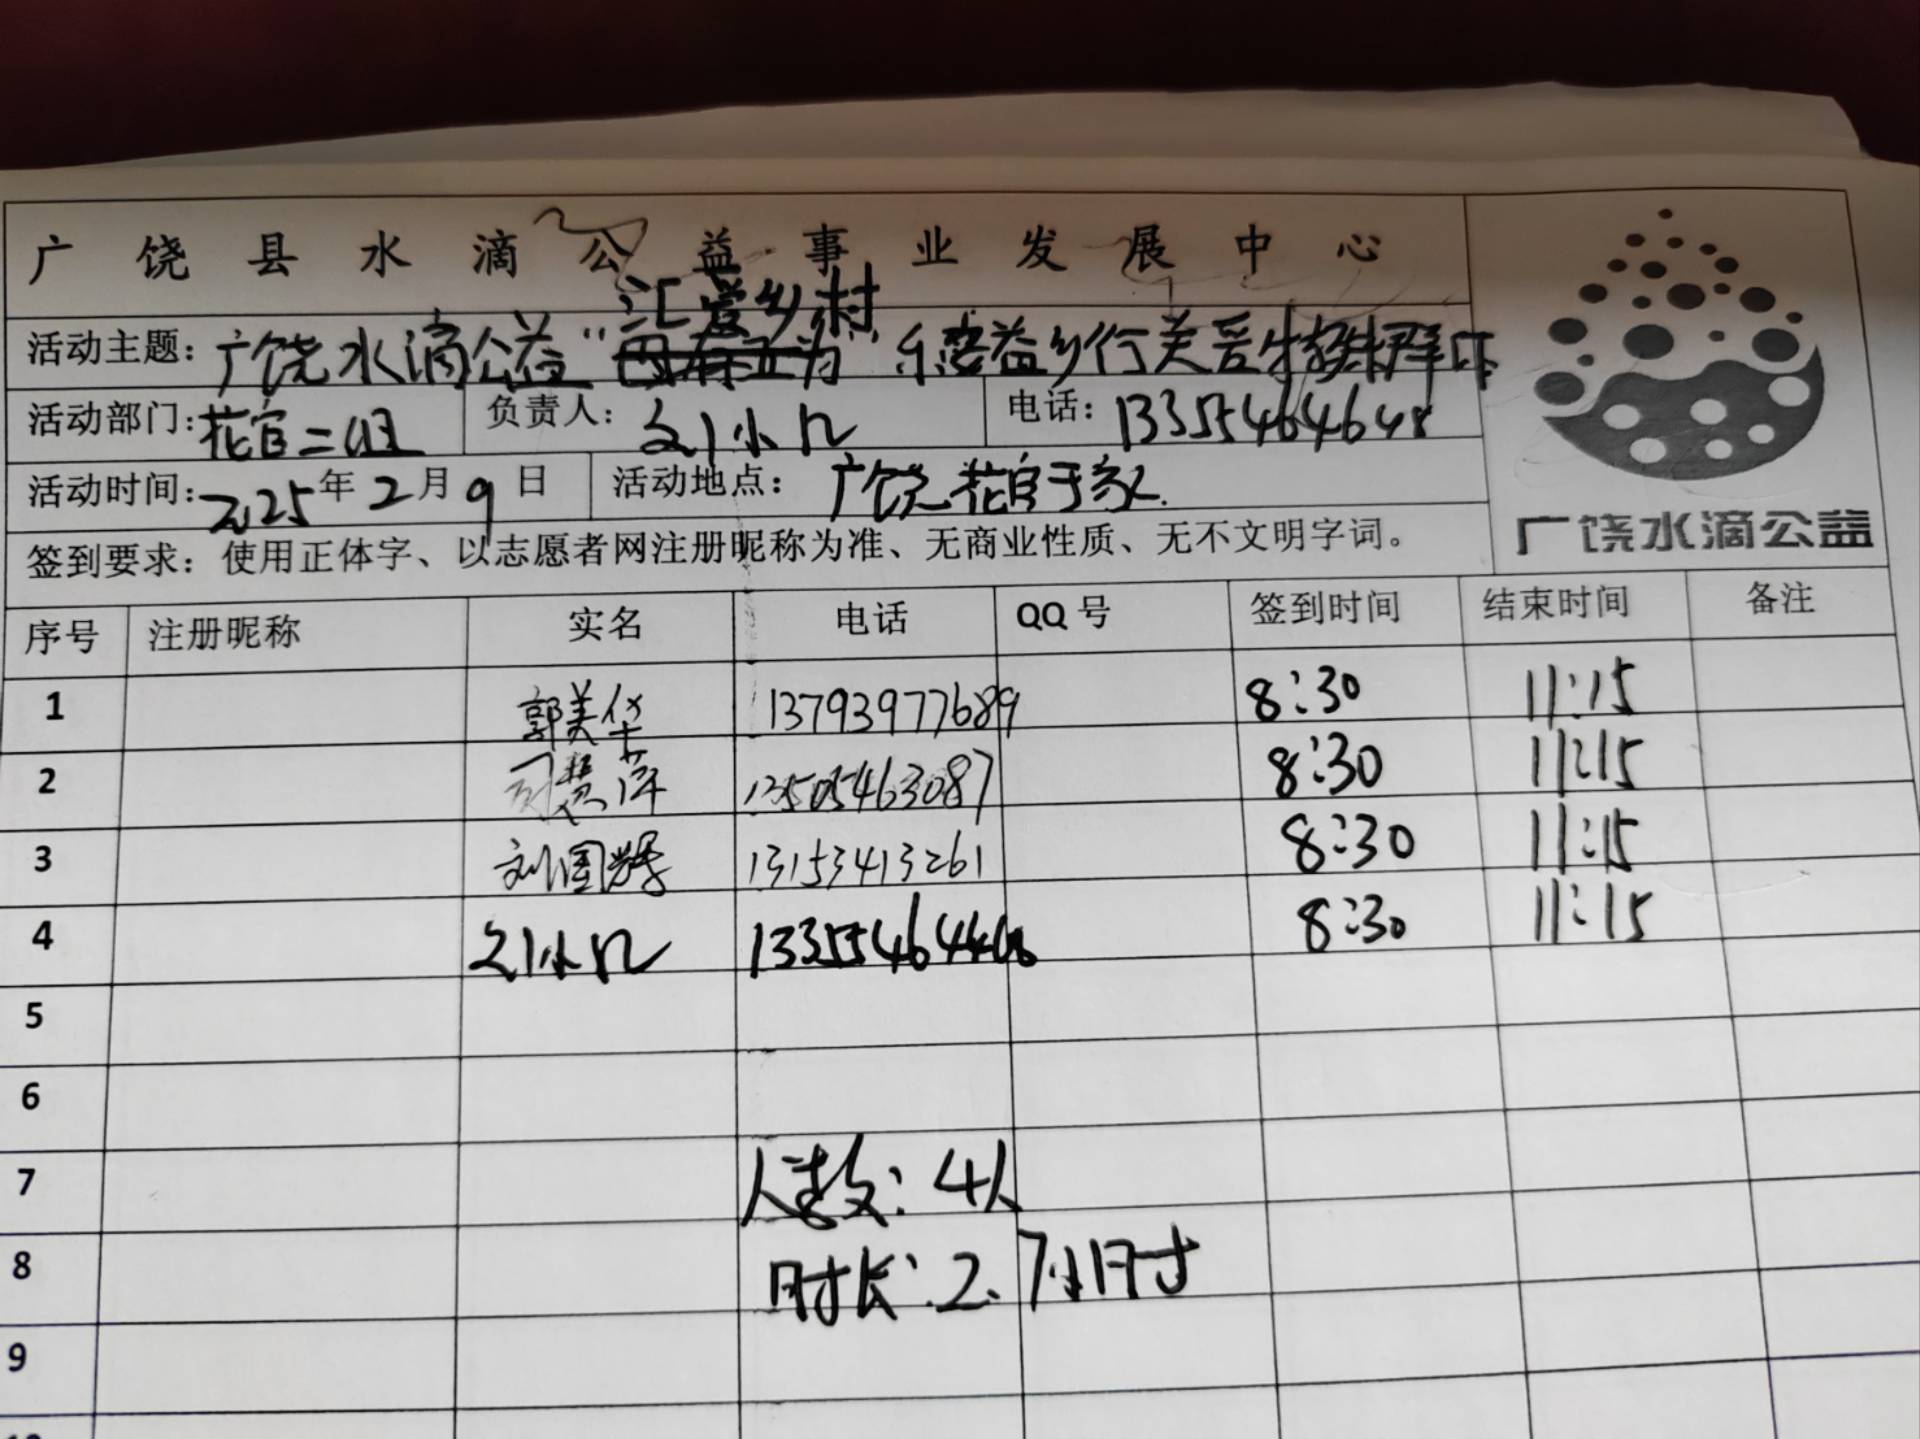 广饶县水滴公益事业发展中心
汇爱乡村
活动主题：广饶水滴公益“ ”乐善益乡行关爱特殊群体
活动部门：花官二组 负责人：刘小 电话：13355464648
活动时间：2025年2月9日 活动地点：广饶花官于家
签到要求：使用正体字、以志愿者网注册昵称为准、无商业性质、无不文明字词。
广饶水滴公益
序号 注册昵称 实名 电话 QQ号 签到时间 结束时间 备注
1 郭美华 13793977689 8:30 11:15
2 萍 13505463087 8:30 11:15
3 刘国 13153413261 8:30 11:15
4 刘小 8:30 11:15
5
6
7 人数：4人
8 时长：2.7小时
9